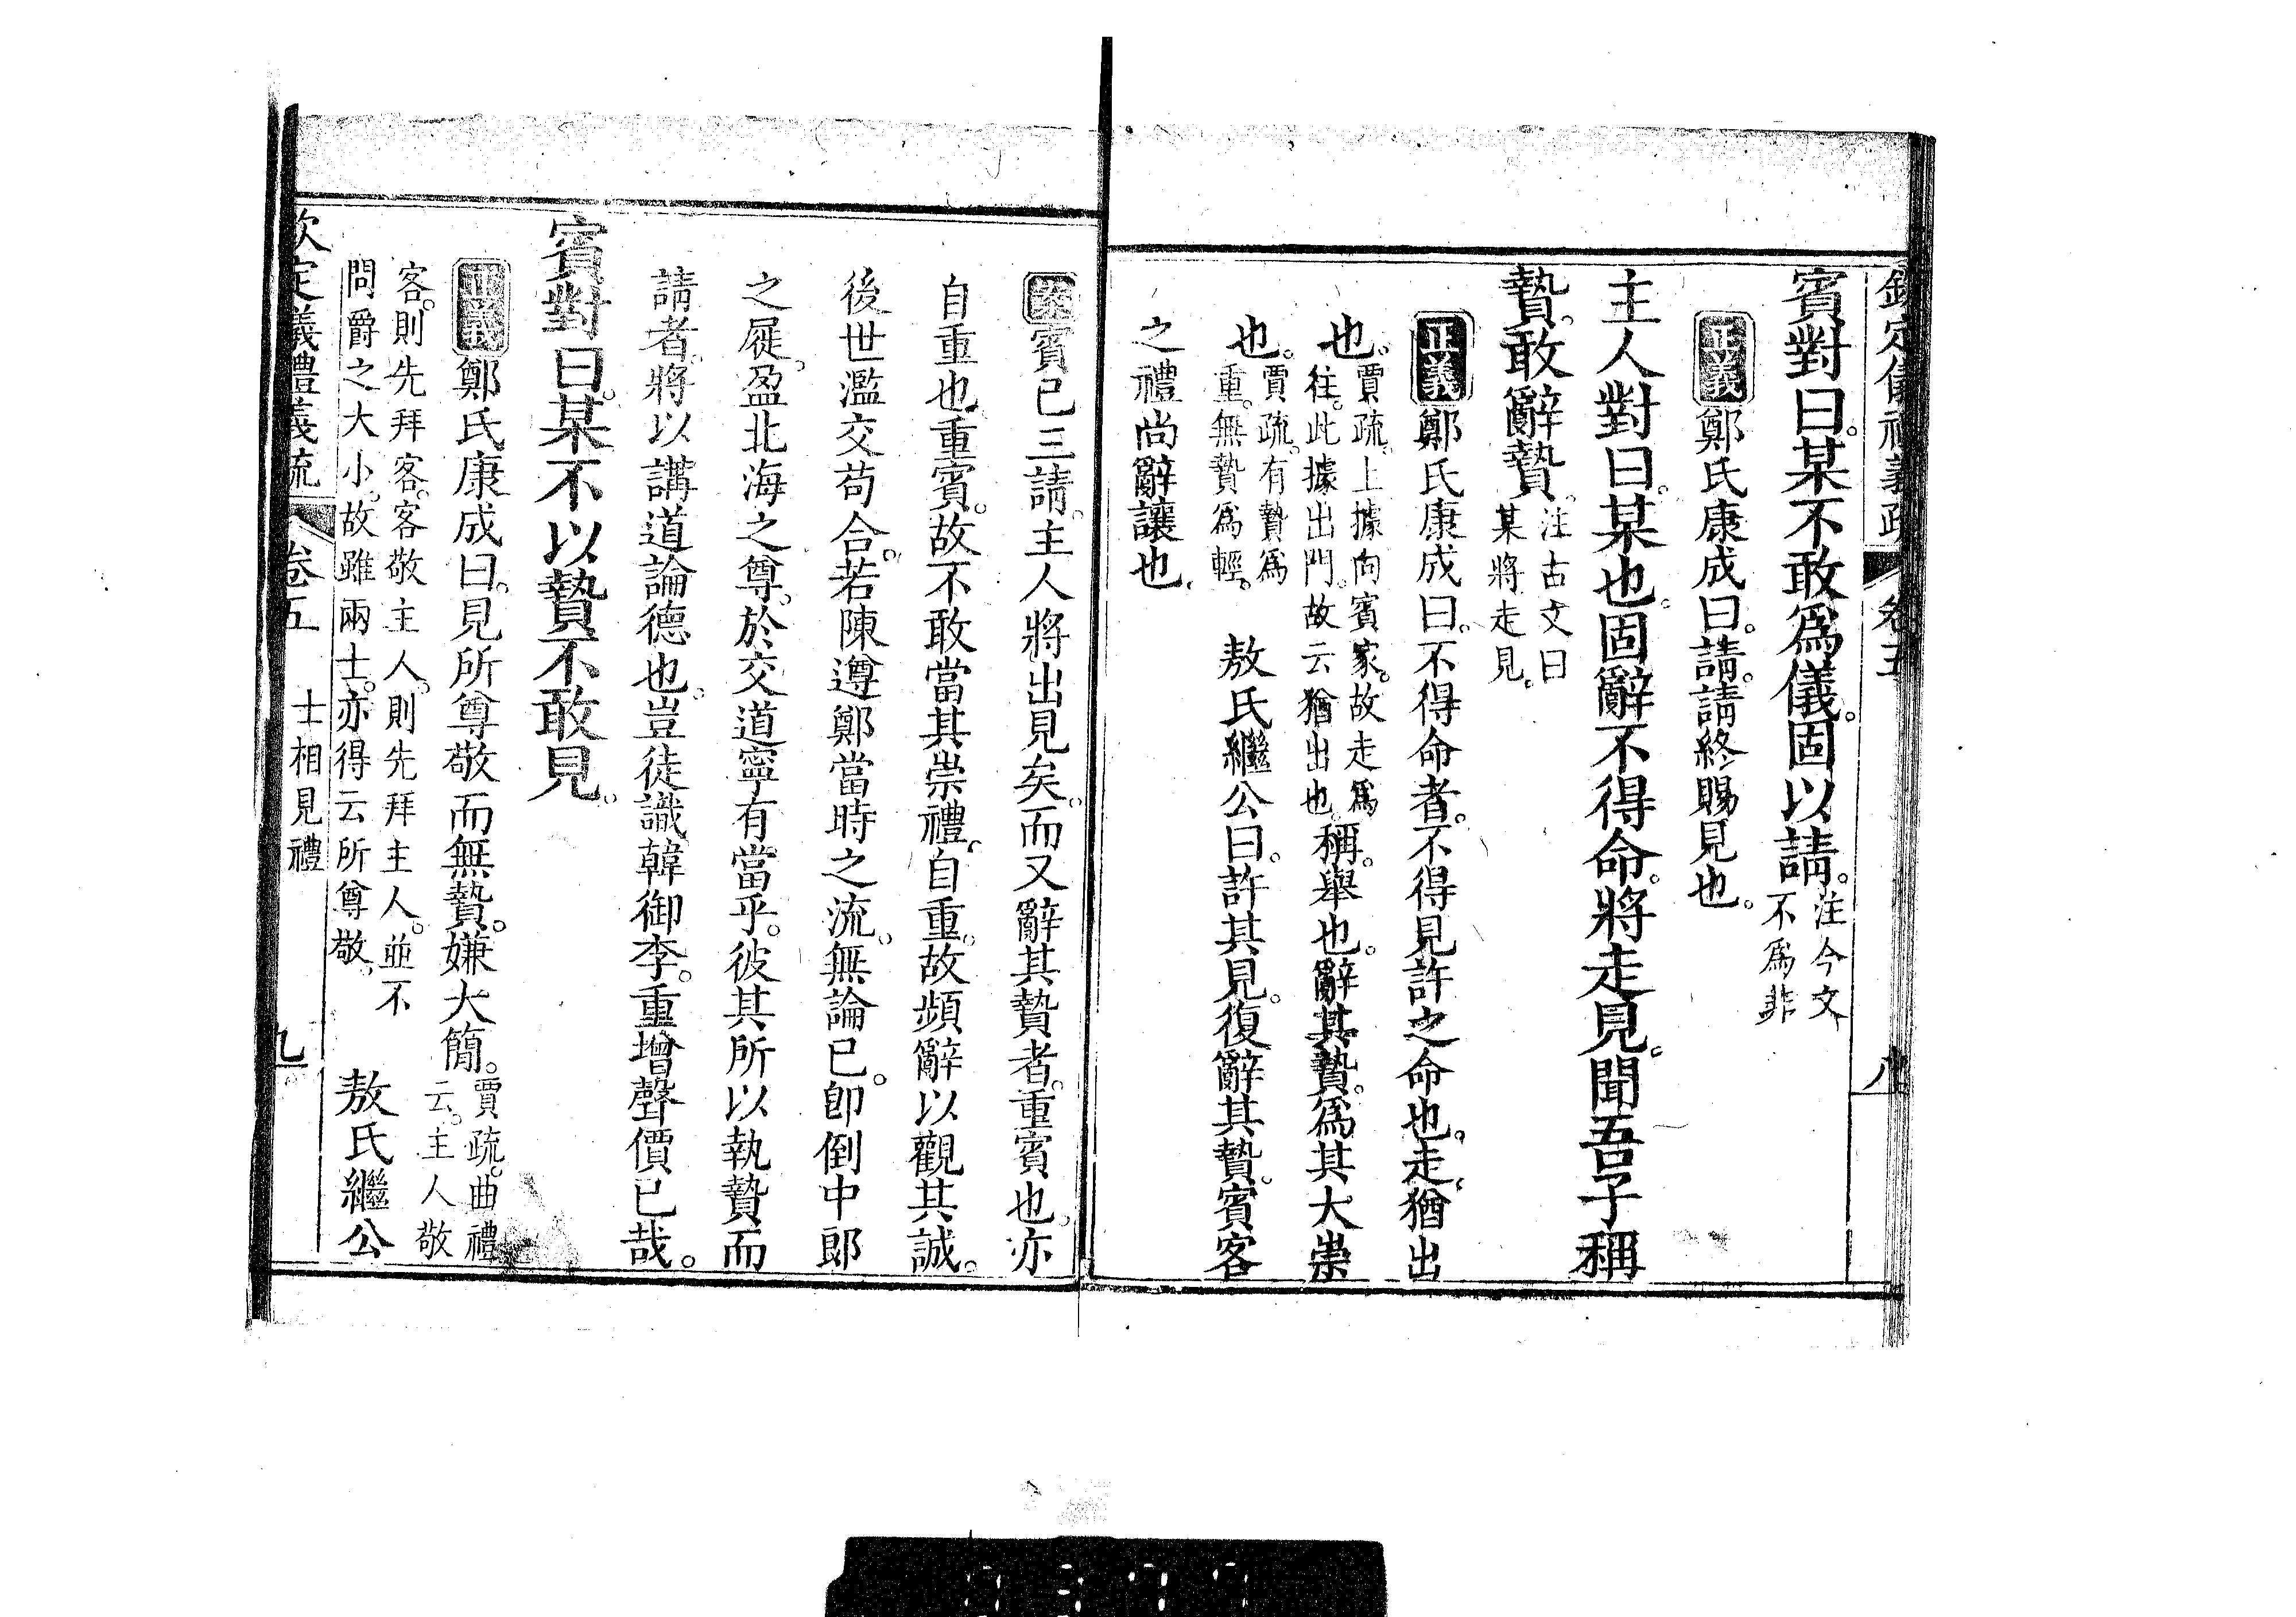 欽定儀禮義疏 卷五 八
賓對曰。某不敢爲儀。固以請。注今文不爲非
正義鄭氏康成曰。請。請終賜見也。
主人對曰。某也。固辭不得命。將走見。聞吾子稱
贄。敢辭贄。注古文曰某將走見。
正義鄭氏康成曰。不得命者。不得見許之命也。走。猶出
也。賈疏。上據向賓家。故走爲往。此據出門。故云猶出也。稱。舉也。辭其贄。爲其大崇
也。賈疏。有贄爲重。無贄爲輕。 敖氏繼公曰。許其見。復辭其贄。賓客
之禮尚辭讓也。
案賓已三請。主人將出見矣。而又辭其贄者。重賓也。亦
自重也。重賓。故不敢當其崇禮。自重。故頻辭以觀其誠。
後世濫交苟合。若陳遵鄭當時之流。無論已。卽倒中郎
之屣。盈北海之尊。於交道寧有當乎。彼其所以執贄而
請者。將以講道論德也。豈徒識韓御李。重增聲價已哉。
賓對曰。某不以贄不敢見。
正義鄭氏康成曰。見所尊敬而無贄。嫌大簡。賈疏。曲禮云。主人敬
客。則先拜客。客敬主人。則先拜主人。並不問爵之大小。故雖兩士。亦得云所尊敬。 敖氏繼公
欽定儀禮義疏 卷五 士相見禮 九